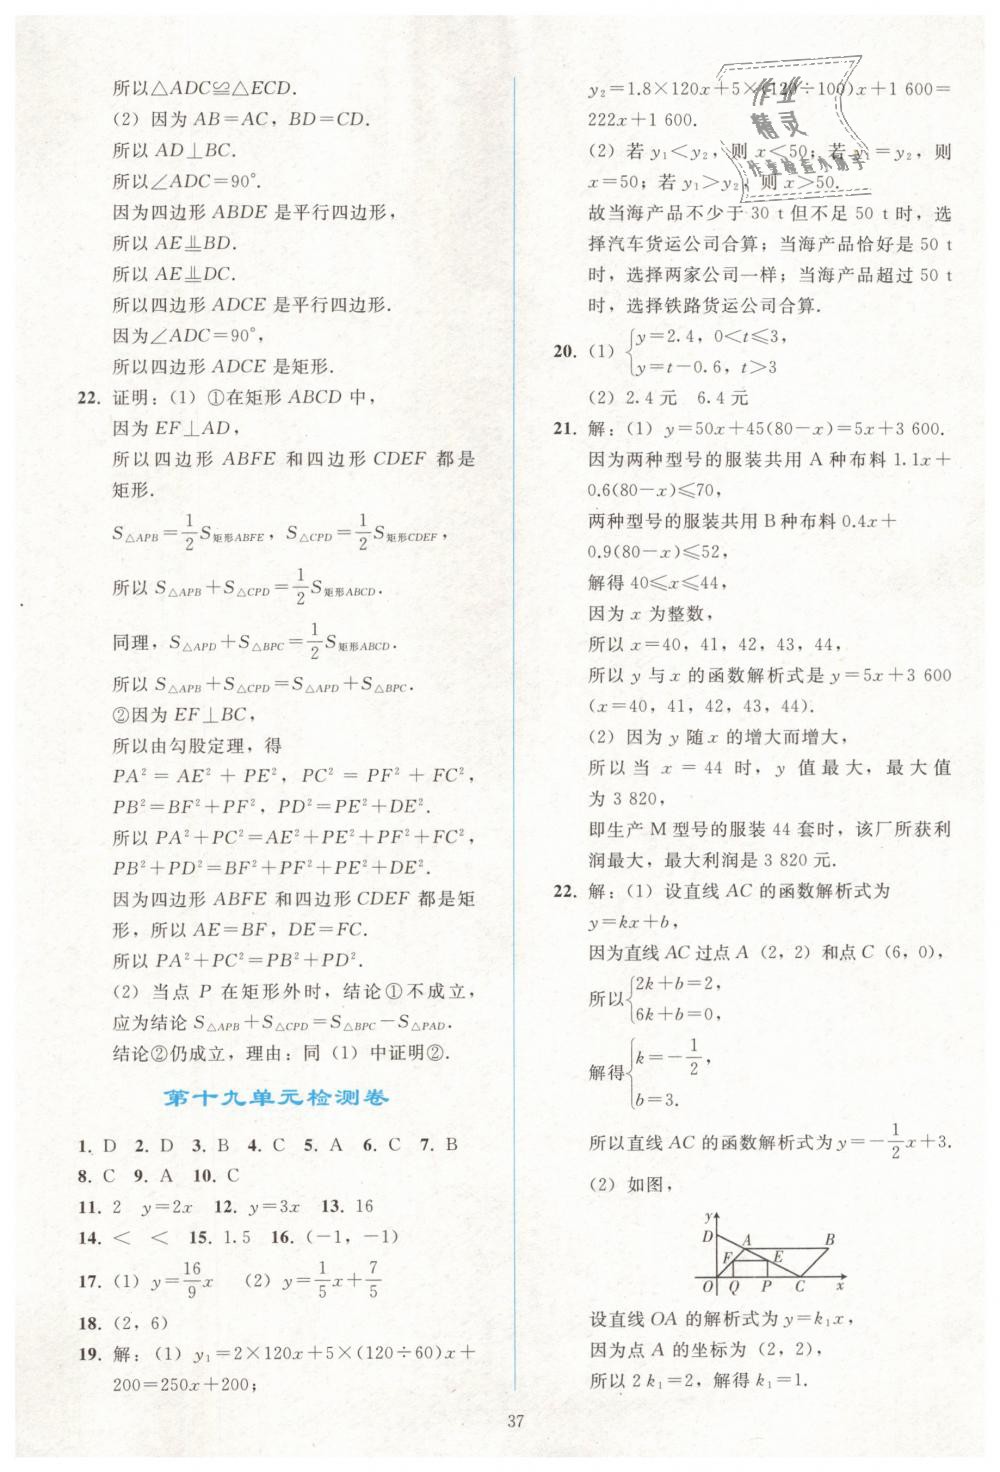 所以△ADC≌△ECD.
(2) 因为 AB=AC, BD=CD.
所以 AD⊥BC.
所以∠ADC=90°.
因为四边形 ABDE 是平行四边形,
所以 AE⊥∥BD.
所以 AE⊥∥DC.
所以四边形 ADCE 是平行四边形.
因为∠ADC=90°,
所以四边形 ADCE 是矩形.
22. 证明: (1) ①在矩形 ABCD 中,
因为 EF⊥AD,
所以四边形 ABFE 和四边形 CDEF 都是
矩形.
S△APB=1/2S矩形ABFE, S△CPD=1/2S矩形CDEF,
所以 S△APB+S△CPD=1/2S矩形ABCD.
同理, S△APD+S△BPC=1/2S矩形ABCD.
所以 S△APB+S△CPD=S△APD+S△BPC.
②因为 EF⊥BC,
所以由勾股定理, 得
PA²=AE²+PE², PC²=PF²+FC²,
PB²=BF²+PF², PD²=PE²+DE².
所以 PA²+PC²=AE²+PE²+PF²+FC²,
PB²+PD²=BF²+PF²+PE²+DE².
因为四边形 ABFE 和四边形 CDEF 都是矩
形, 所以 AE=BF, DE=FC.
所以 PA²+PC²=PB²+PD².
(2) 当点 P 在矩形外时, 结论①不成立,
应为结论 S△APB+S△CPD=S△BPC-S△PAD.
结论②仍成立, 理由: 同 (1) 中证明②.
第十九单元检测卷
1. D 2. D 3. B 4. C 5. A 6. C 7. B
8. C 9. A 10. C
11. 2 y=2x 12. y=3x 13. 16
14. < < 15. 1.5 16. (-1, -1)
17. (1) y=16/9x (2) y=1/5x+7/5
18. (2, 6)
19. 解: (1) y₁=2×120x+5×(120÷60)x+
200=250x+200;
y₂=1.8×120x+5×(120÷100)x+1 600=
222x+1 600.
(2) 若 y₁<y₂, 则 x<50; 若 y₁=y₂, 则
x=50; 若 y₁>y₂, 则 x>50.
故当海产品不少于 30 t 但不足 50 t 时, 选
择汽车货运公司合算; 当海产品恰好是 50 t
时, 选择两家公司一样; 当海产品超过 50 t
时, 选择铁路货运公司合算.
20. (1) {y=2.4, 0<t≤3,
y=t-0.6, t>3
(2) 2.4 元 6.4 元
21. 解: (1) y=50x+45(80-x)=5x+3 600.
因为两种型号的服装共用 A 种布料 1.1x+
0.6(80-x)≤70,
两种型号的服装共用 B 种布料 0.4x+
0.9(80-x)≤52,
解得 40≤x≤44,
因为 x 为整数,
所以 x=40, 41, 42, 43, 44,
所以 y 与 x 的函数解析式是 y=5x+3 600
(x=40, 41, 42, 43, 44).
(2) 因为 y 随 x 的增大而增大,
所以当 x=44 时, y 值最大, 最大值
为 3 820,
即生产 M 型号的服装 44 套时, 该厂所获利
润最大, 最大利润是 3 820 元.
22. 解: (1) 设直线 AC 的函数解析式为
y=kx+b,
因为直线 AC 过点 A (2, 2) 和点 C (6, 0),
所以{2k+b=2,
6k+b=0,
解得{k=-1/2,
b=3.
所以直线 AC 的函数解析式为 y=-1/2x+3.
(2) 如图,
y
D A B
F E
O Q P C x
设直线 OA 的解析式为 y=k₁x,
因为点 A 的坐标为 (2, 2),
所以 2k₁=2, 解得 k₁=1.
37
作业
精灵
作业检查小助手